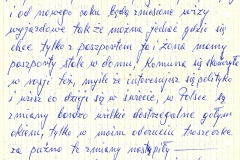 i od nowego roku będą zniesione wizy
wyjazdowe tak że można jechać gdzie się
chce tylko z paszportem ja i żona mamy
paszporty stale w domu. Komuna się skończyła
w rosji też, myślę że interesujesz się polityką
i wiesz co dzieje się w świecie, w Polsce są
zmiany bardzo wielkie dostrzegalne gołym
okiem, tylko w moim odczuciu troszeczkę
za późno te zmiany nastąpiły